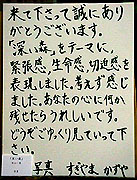 来て下さって誠にあり
がとうございます。
「深い森」をテーマに、
緊張感、生命感、切迫感を
表現しました。考えず感じ
ました。あなたの心に何か
残せたらうれしいです。
どうぞごゆっくり見ていって下さ
い。
写真 すぎやま かずや